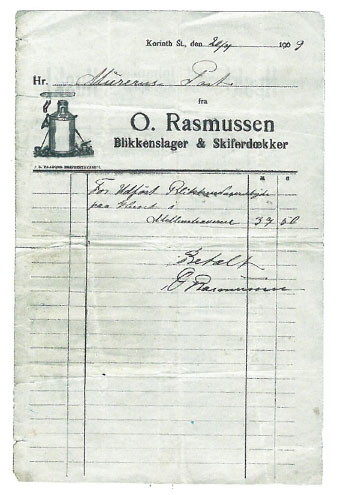 Korinth St., den 20/4 1909
Hr. Murerm. Part
fra
O. Rasmussen
Blikkenslager & Skiferdœkker
For Udført Blikkenslagerarbejde
paa Huset i
Mellemhaverne 37 50
Betalt
O Rasmussen